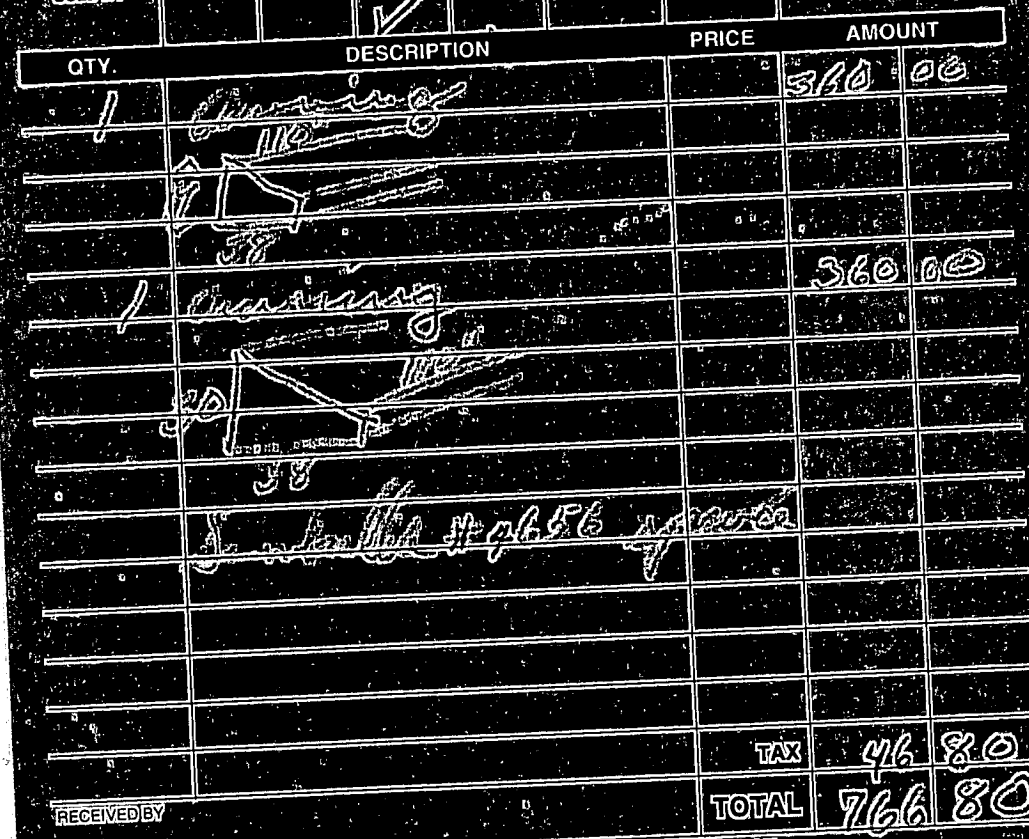 QTY. DESCRIPTION PRICE AMOUNT
1 Awning 360 00
110
38
1 Awning 360 00
30
38
Sunbrella # 4656 spruce
TAX 46 80
RECEIVED BY TOTAL 766 80